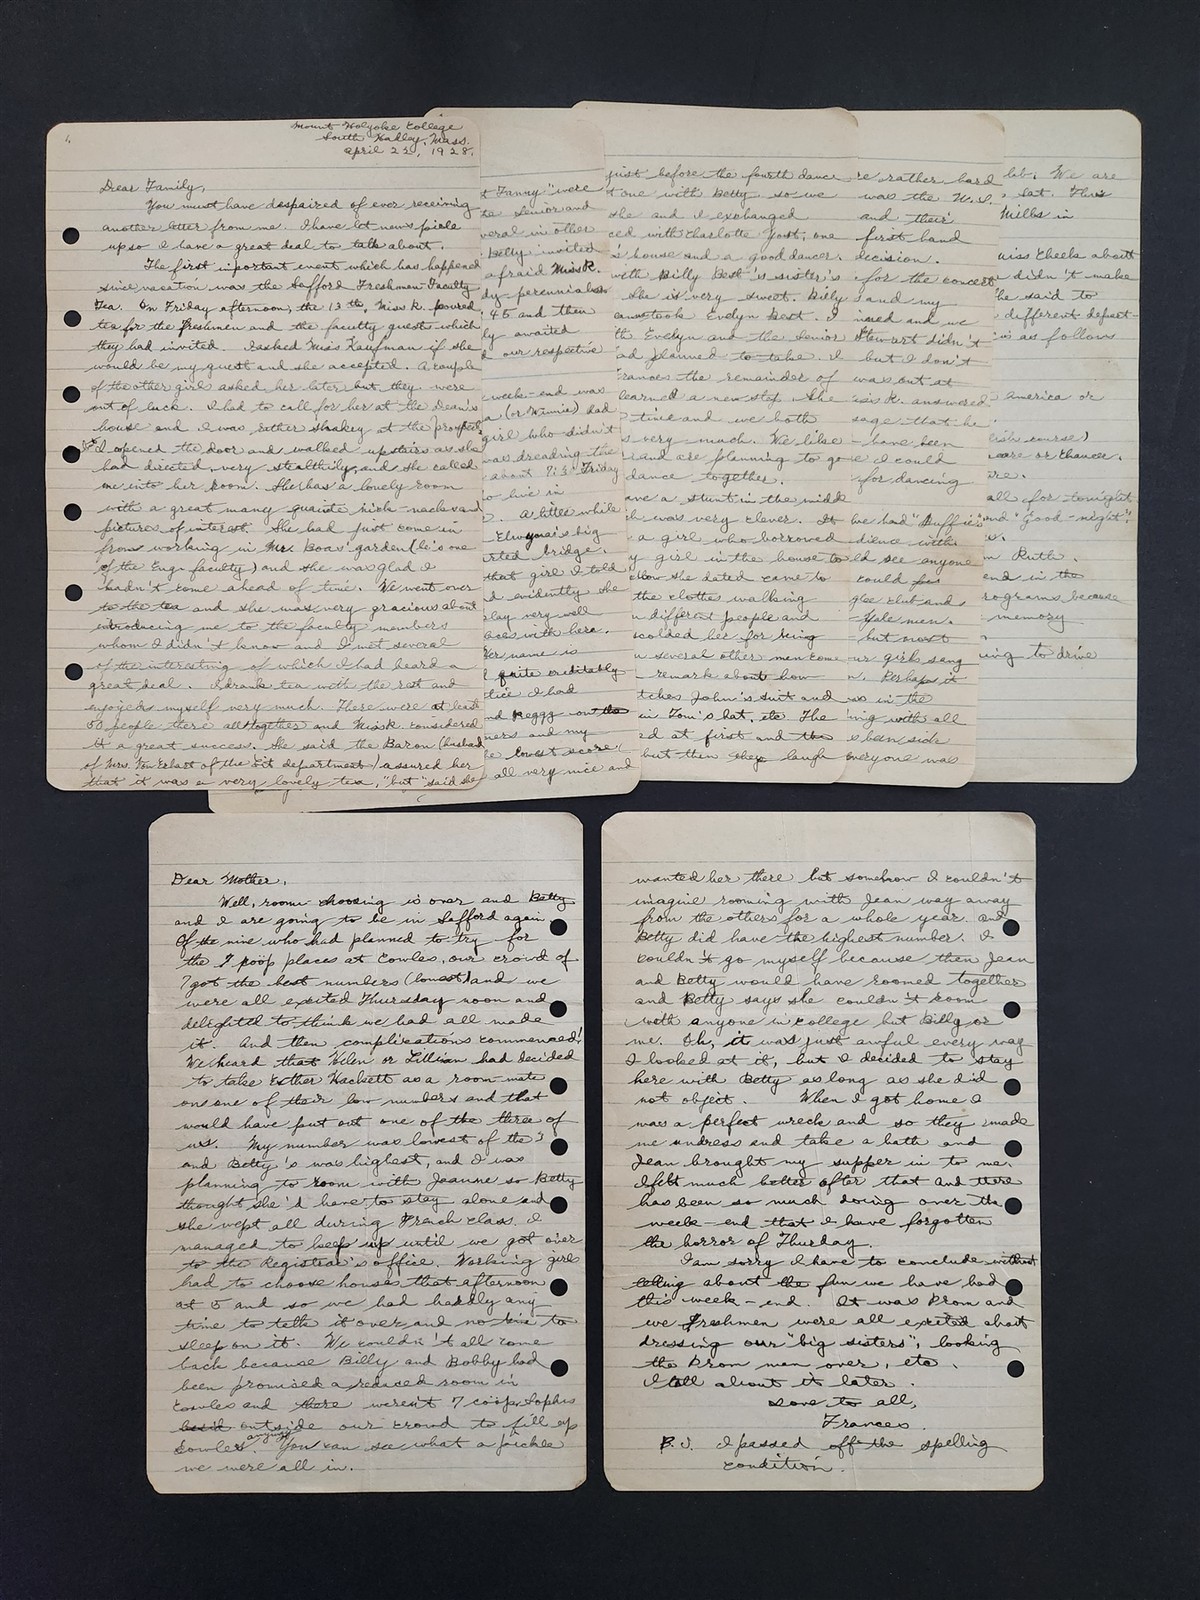 1.
Mount Holyoke College
South Hadley, Mass.
April 23, 1928.
Dear Family,
You must have despaired of ever receiving
another letter from me. I have let news pile
up so I have a great deal to talk about.
The first important event which has happened
since vacation was the Safford Freshman-Faculty
Tea. On Friday afternoon, the 13th, Miss K. poured
tea for the freshmen and the faculty guests which
they had invited. I asked Miss Kaufman if she
would be my guest and she accepted. A couple
of the other girls asked her later but they were
out of luck. I had to call for her at the Dean's
house and I was rather shakey at the prospect
I opened the door and walked upstairs as she
had directed, very stealthily, and she called
me into her room. She has a lovely room
with a great many quaint knick-knacks and
pictures of interest. She had just come in
from working in Mr. Boas' garden (he's one
of the Eng. faculty) and she was glad I
hadn't come ahead of time. We went over
to the tea and she was very gracious about
introducing me to the faculty members
whom I didn't know and I met several
of the interesting of which I had heard a
great deal. I drank tea with the rest and
enjoyed myself very much. There were at least
50 people there all together and Miss K. considered
it a great success. She said the Baron (husband
of Mrs. of the Lit department) assured her
that it was a very lovely tea, "but" said she
t Fanny" were
ta Senior and
veral in other
Betty invited
afraid Miss K.
dy perennials
45 and then
ly awaited
d our respective
week-end was
a (or Winnie) dad
girl who didn't
was dreading the
about 7:30 Friday
o live in
. A little while
Elwyna's big
rted bridge.
that girl I told
d evidently she
play very well
aces with her.
Her name is
quite creditably
tice I had
nd Peggy
ners and my
e lowest score.
all very nice and
just before the fourth dance
t one with Betty so we
she and I exchanged
ced with Charlotte Yost, one
's house and a good dancer.
with Billy Best's sister's
She is very sweet. Billy
took Evelyn Best. I
th Evelyn and the Senior
ad planned to take. I
rances the remainder of
learned a new step. She
time and we both
s very much. We like
r and are planning to go
dance together.
ave a stunt in the middle
h was very clever. It
a girl who borrowed
y girl in the house to
How she dated came to
the clothes walking
n different people and
scolded her for being
u several other men come
remark about how
tches John's suit and
in Tom's hat, etc. The
ed at first and the
but then they laugh
re rather hard
was the N.S.
and their
first band
decision.
for the concert
s and my
ined and we
Stewart didn't
but I don't
was out at
iss K. answered
sage that he
have been
e I could
for dancing
we had "Buffie's
dience with
ld see anyone
could
glee club and
Yale men.
but most
ur girls sang
n. Perhaps it
so in the
ing with all
s been side
everyone was
lob. We are
, Sat. This
Mills in
Miss Cheeks about
didn't make
he said to
different depart-
is as follows
America or
lish course)
eare or Chaucer.
re.
all for tonight
nd "Good-night".
s.
m Ruth.
end in the
rograms because
memory
ing to drive
Dear Mother,
Well, room choosing is over and Betty
and I are going to be in Safford again.
Of the nine who had planned to try for
the 7 coöp places at Cowles, our crowd of
7 got the best numbers (lowest) and we
were all excited Thursday noon and
delighted to think we had all made
it. And then complications commenced!
We heard that Helen or Lillian had decided
to take Esther Hackett as a room-mate
on one of their low numbers and that
would have put out one of the three of
us. My number was lowest of the 3
and Betty's was highest, and I was
planning to room with Jeanne so Betty
thought she'd have to stay alone and
she wept all during French class. I
managed to keep up until we got over
to the Registrar's office. Working girls
had to choose houses that afternoon
at 5 and so we had hardly any
time to talk it over and no time to
sleep on it. We couldn't all come
back because Billy and Bobby had
been promised a reduced room in
Cowles and there weren't 7 coöp Sophs
outside our crowd to fill up
Cowles anyway. You can see what a pickle
we were all in.
wanted her there but somehow I couldn't
imagine rooming with Jean way away
from the others for a whole year. and
Betty did have the highest number. I
couldn't go myself because then Jean
and Betty would have roomed together
and Betty says she couldn't room
with anyone in college but Billy or
me. Oh, it was just awful every way
I looked at it, but I decided to stay
here with Betty as long as she did
not object. When I got home I
was a perfect wreck and so they made
me undress and take a bath and
Jean brought my supper in to me.
I felt much better after that and there
has been so much doing over the
week-end that I have forgotten
the horror of Thurday.
I am sorry I have to conclude without
telling about the fun we have had
this week-end. It was Prom and
we freshmen were all excited about
dressing our "big sisters", looking
the Prom men over, etc.
I'll tell about it later.
Love to all,
Frances.
P.S. I passed off the spelling
condition.